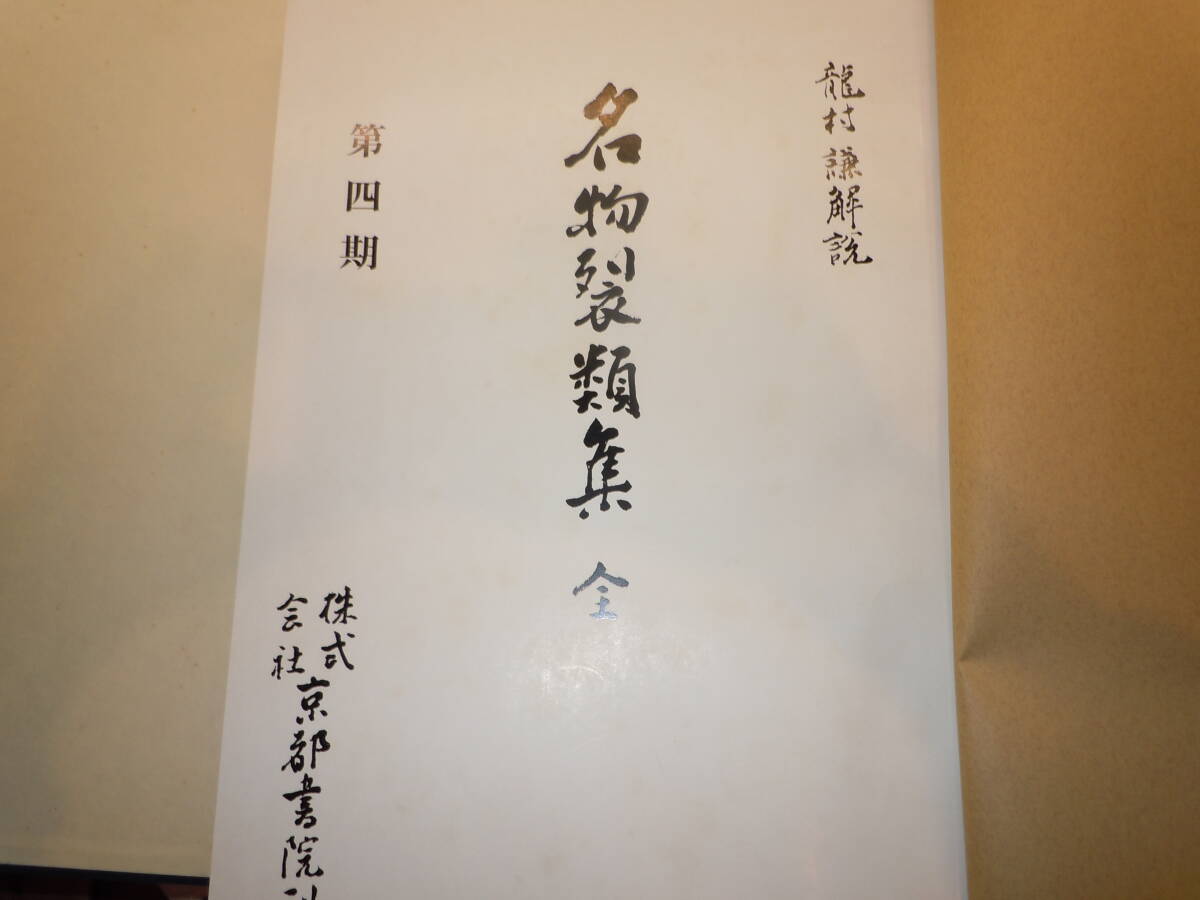 龍村謙解説
名物裂類集 全
第四期
株式会社
京都書院